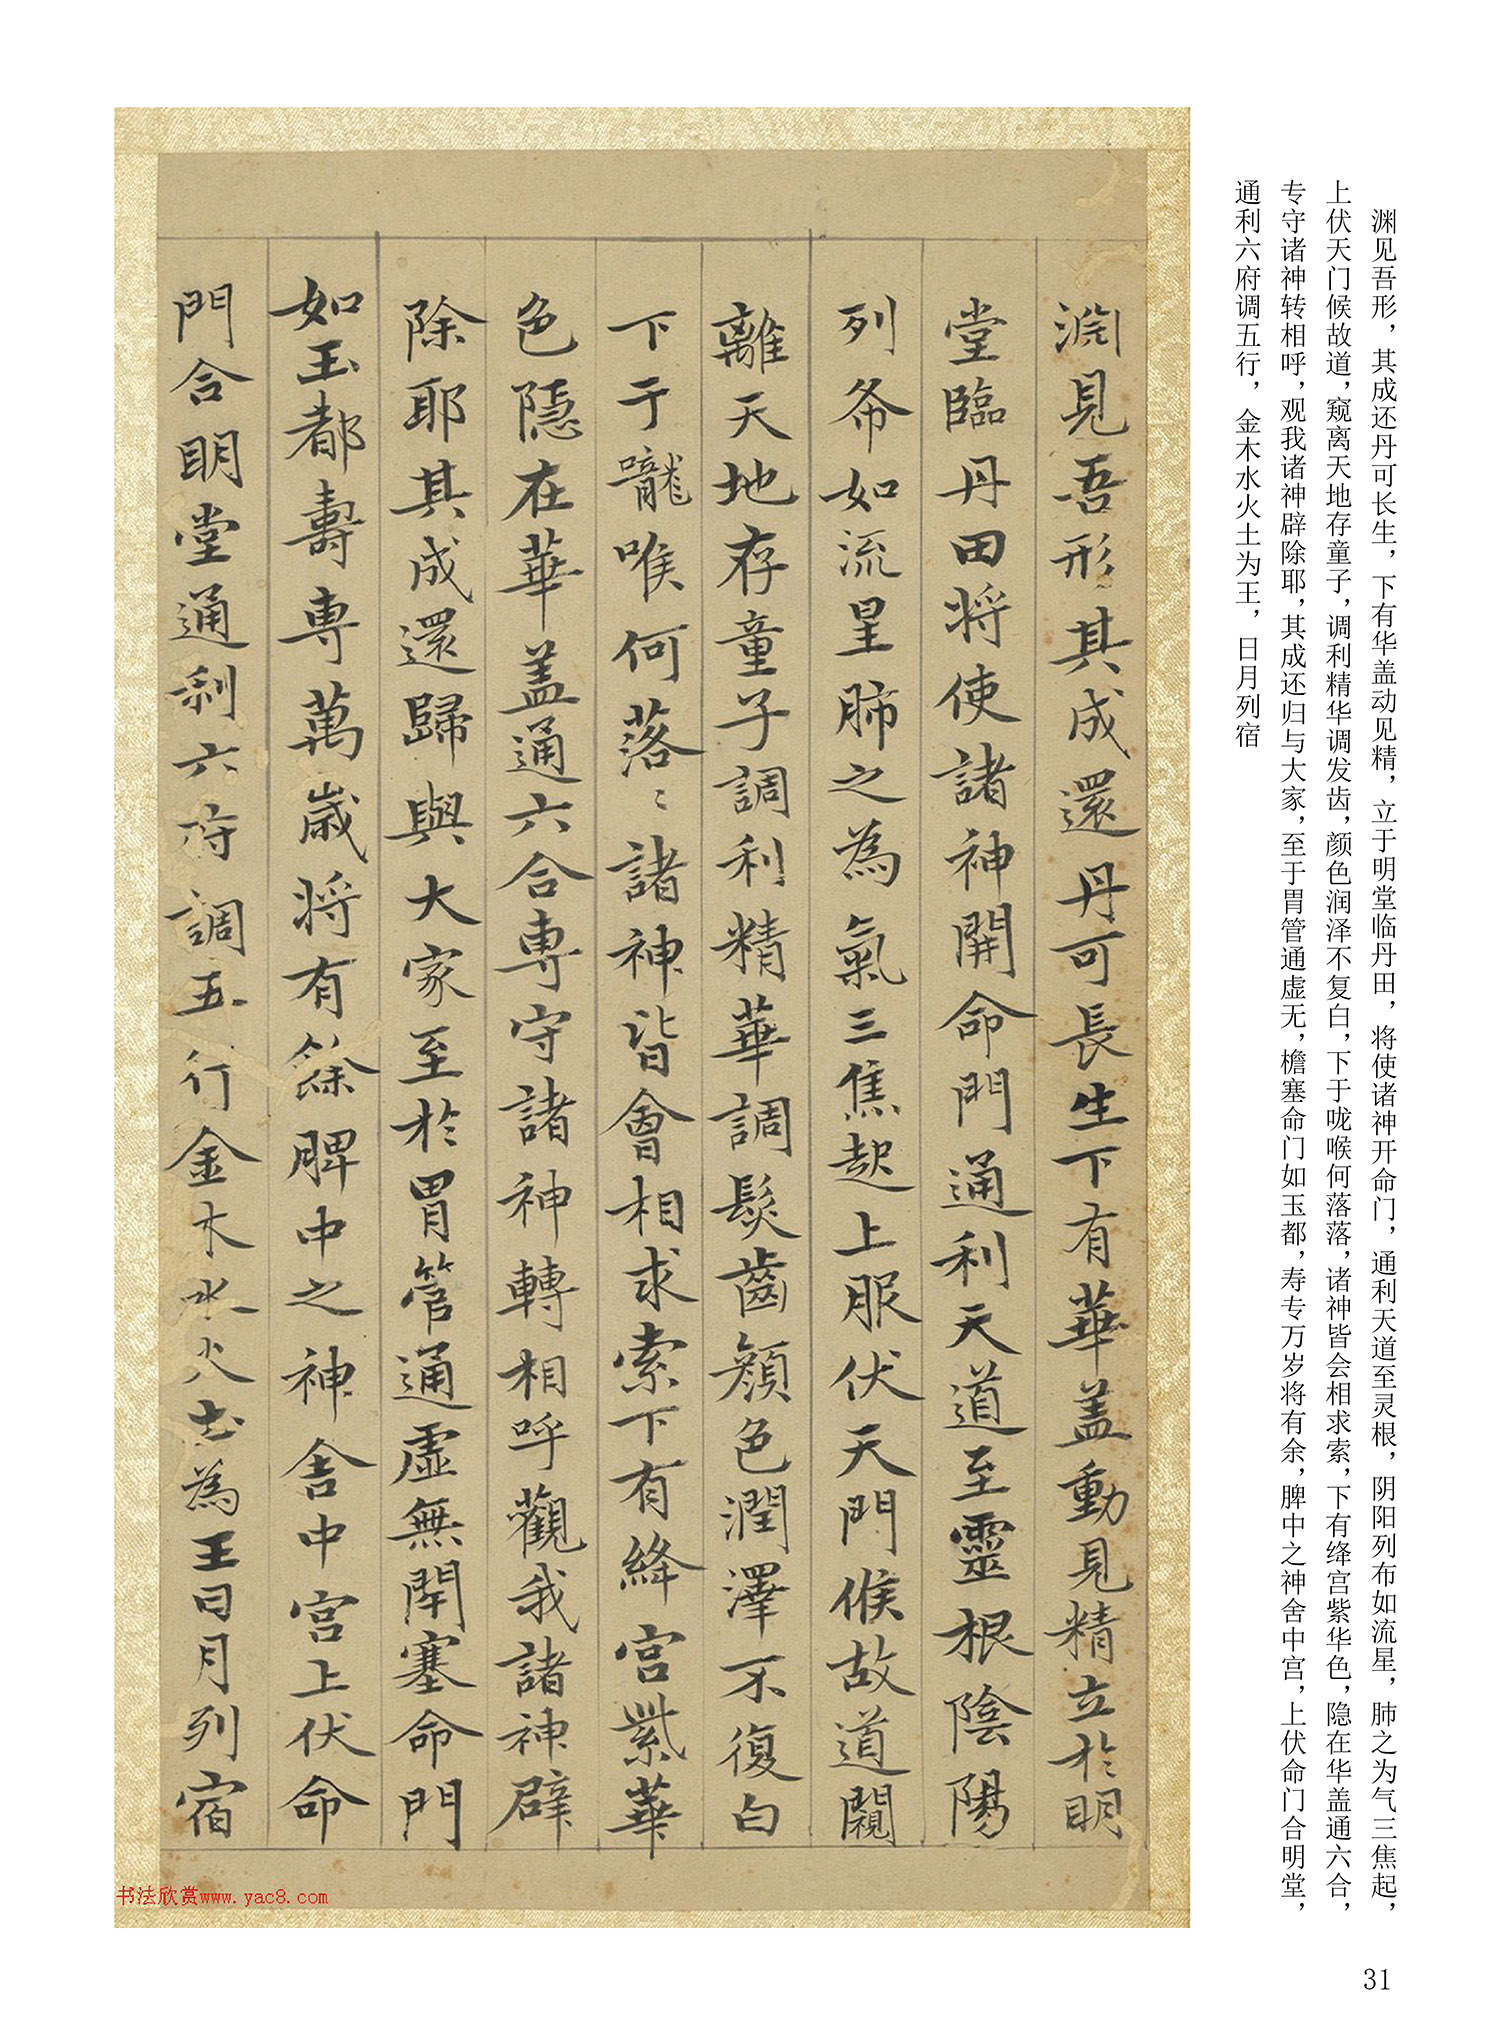 渊见吾形，其成还丹可长生，下有华盖动见精，立于明堂临丹田，将使诸神开命门，通利天道至灵根，阴阳列布如流星，肺之为气三焦起，
上伏天门候故道，窥离天地存童子，调利精华调发齿，颜色润泽不复白，下于咙喉何落落，诸神皆会相求索，下有绛宫紫华色，隐在华盖通六合，
专守诸神转相呼，观我诸神辟除耶，其成还归与大家，至于胃管通虚无，檐塞命门如玉都，寿专万岁将有余，脾中之神舍中宫，上伏命门合明堂，
通利六府调五行，金木水火土为王，日月列宿
渕見吾形其成還丹可長生下有華盖動見精立於明
堂臨丹田将使諸神開命門通利天道至靈根陰陽
列布如流星肺之為氣三焦起上服伏天門候故道闚
離天地存童子調利精華調髮齒顏色潤澤不復白
下于嚨喉何落〻諸神皆會相求索下有絳宮紫華
色隱在華盖通六合專守諸神轉相呼觀我諸神辟
除耶其成還歸與大家至於胃管通虛無閉塞命門
如玉都壽專萬歲将有餘脾中之神舍中宮上伏命
門合明堂通利六府調五行金木水火土為王日月列宿
书法欣赏www.yac8.com
31